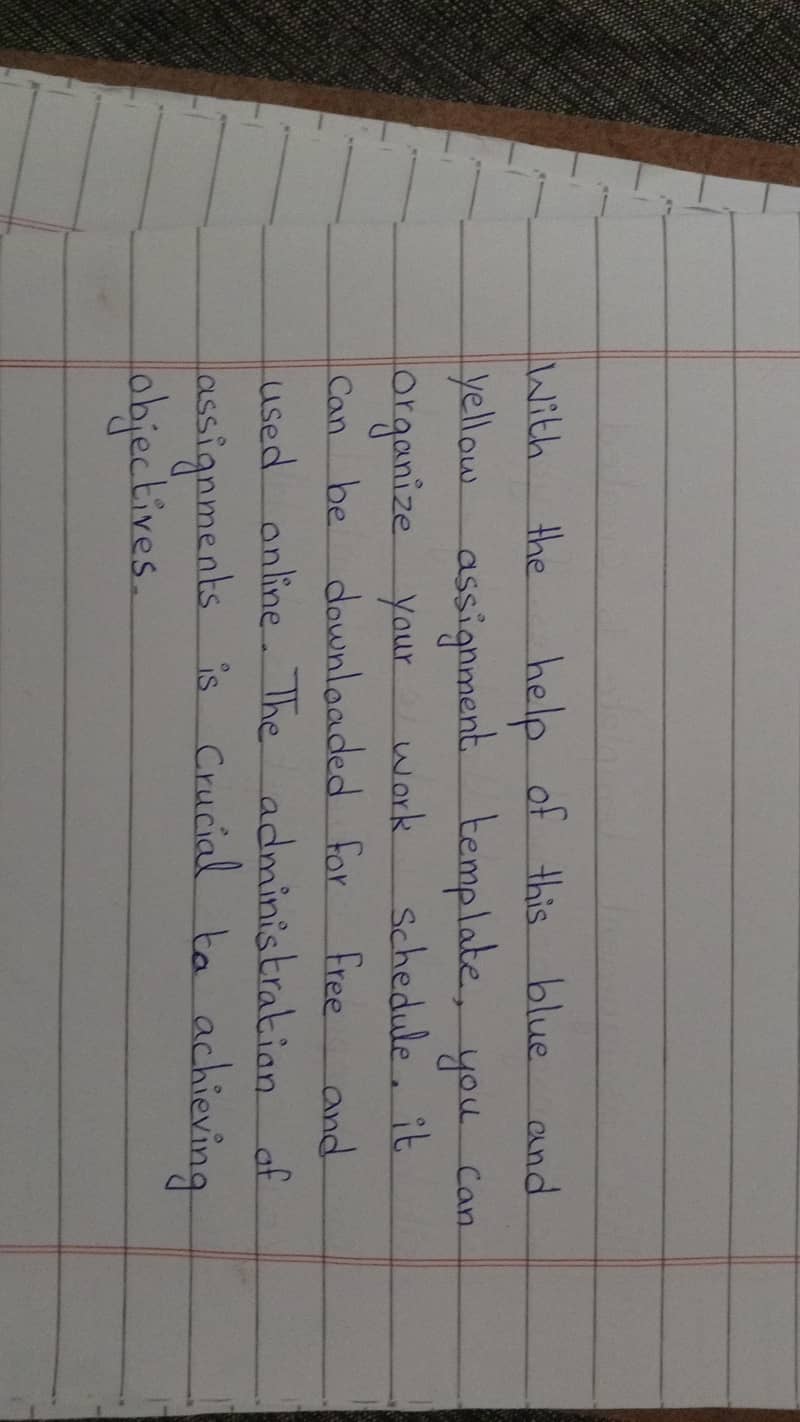 With the help of this blue and
yellow assignment template, you can
organize your work schedule. it
can be downloaded for free and
used online. The administration of
assignments is crucial to achieving
objectives.